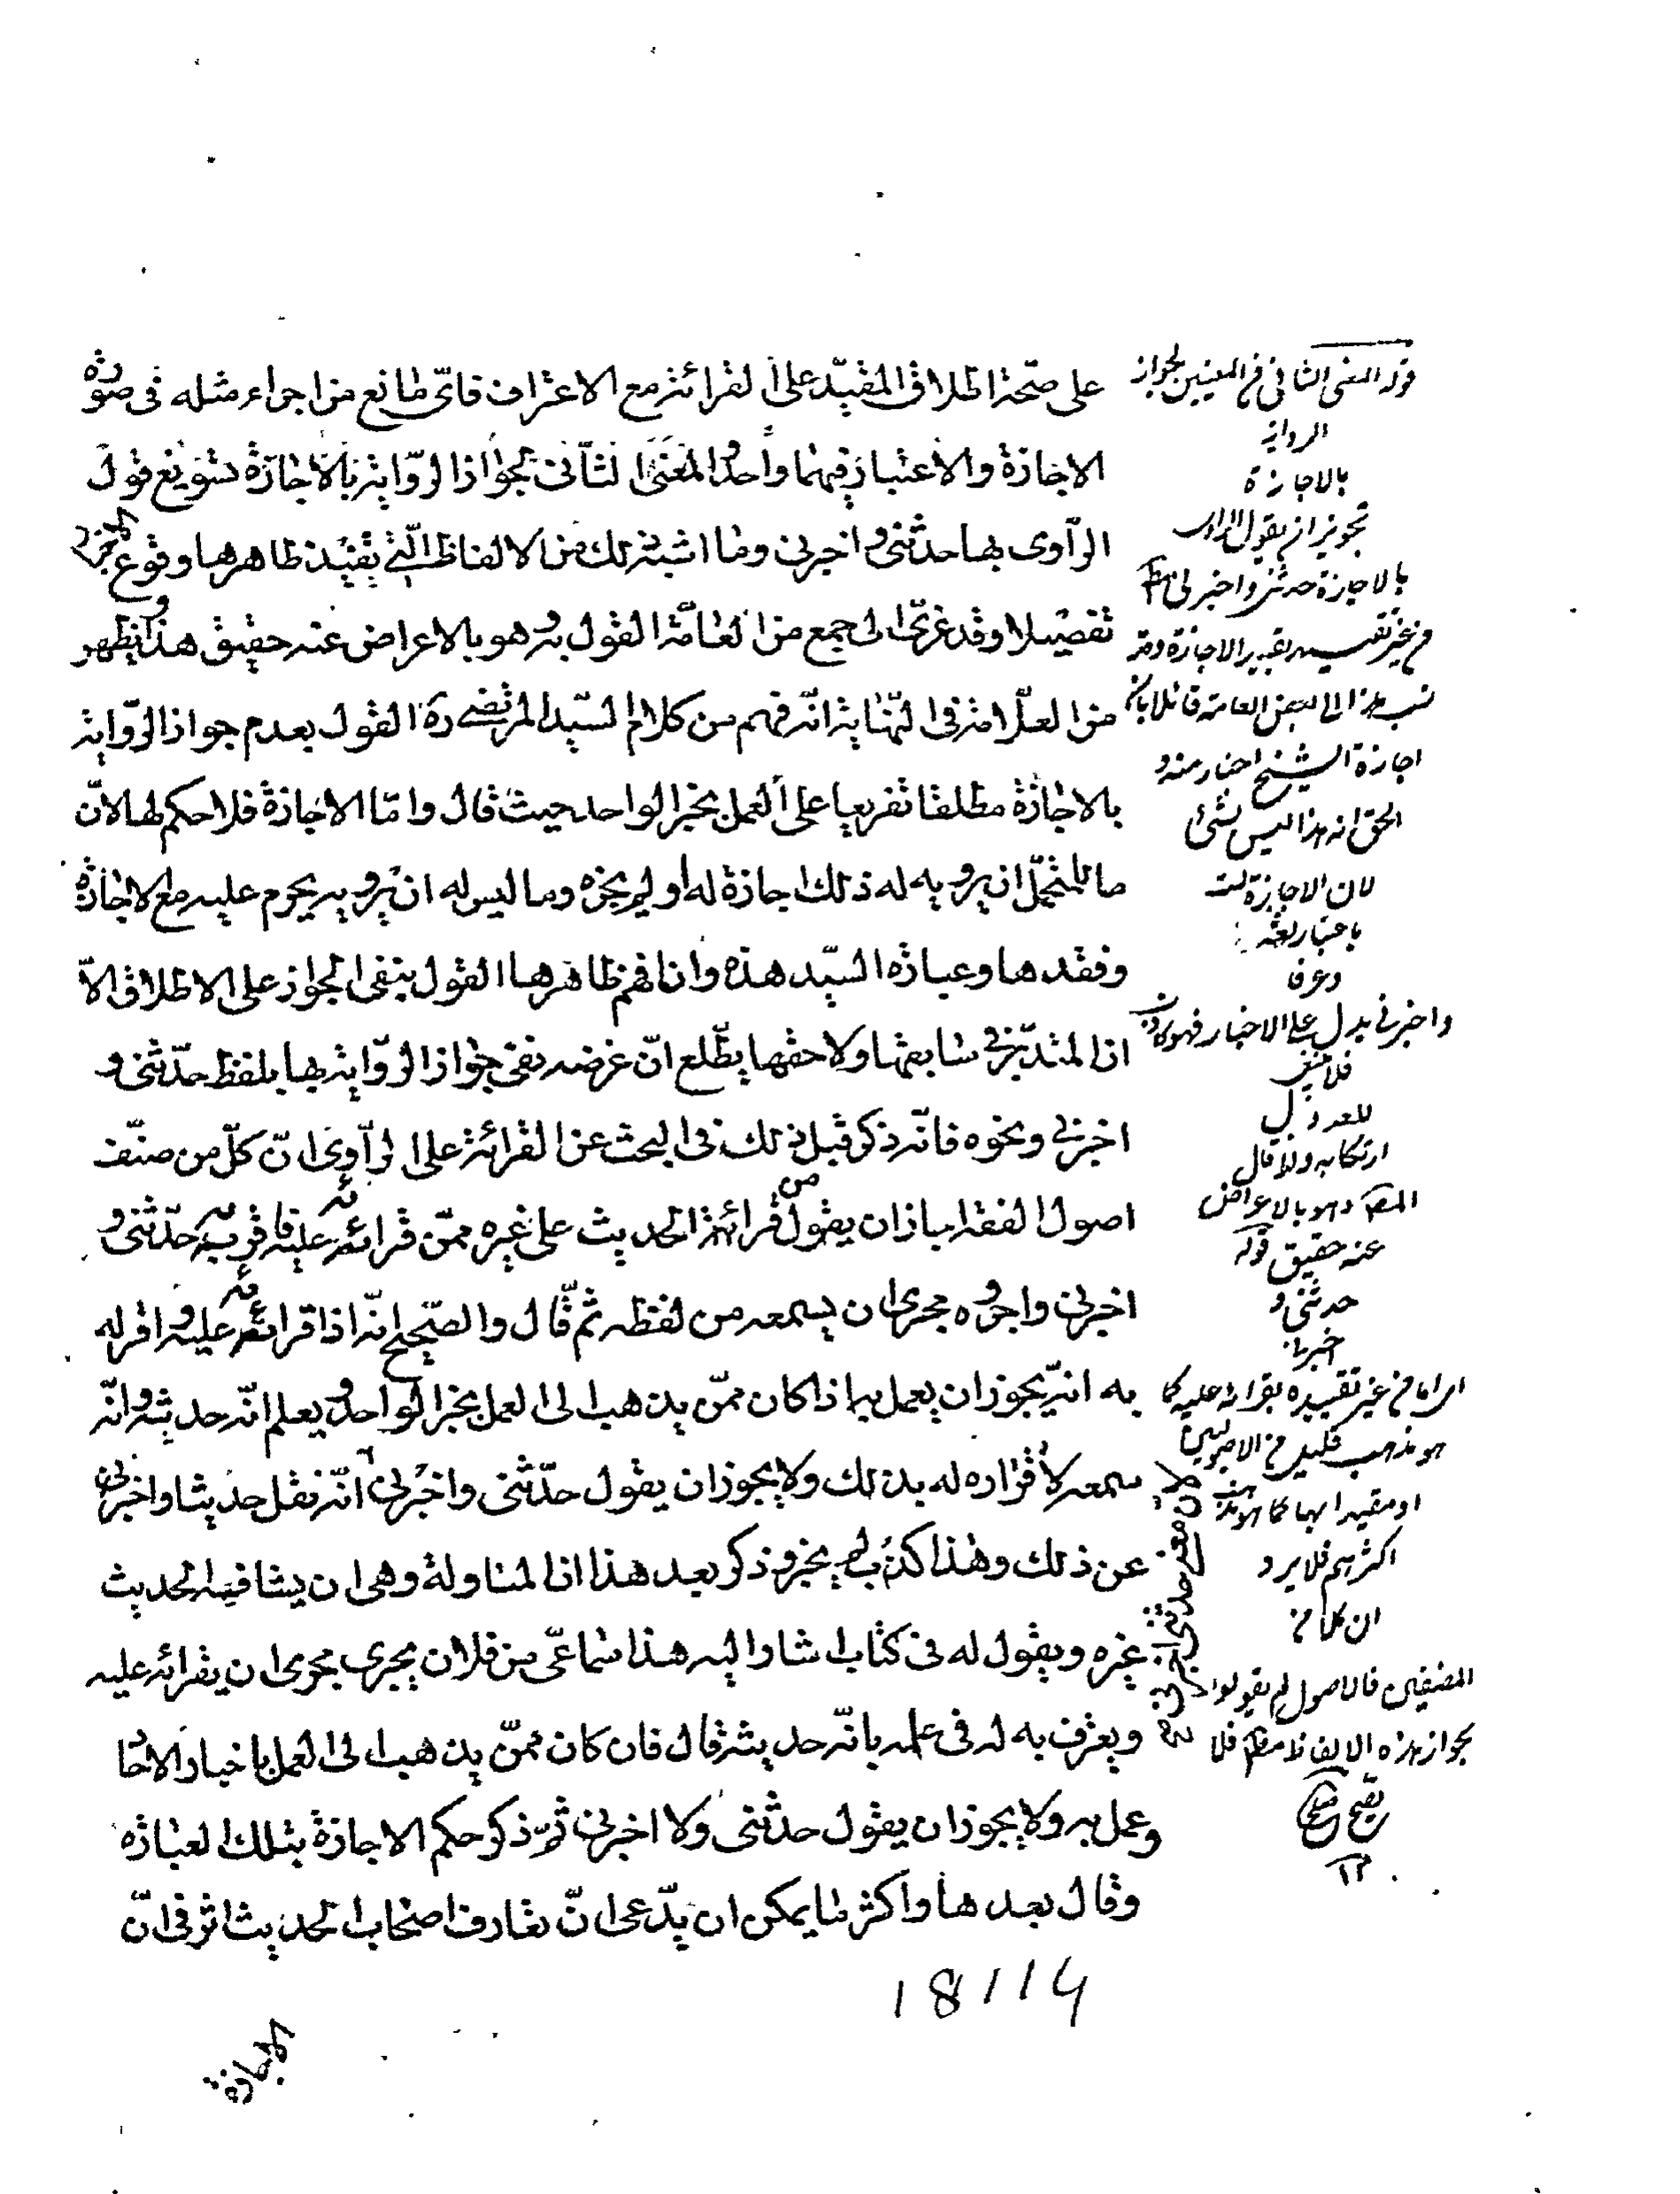 على صحّة اطلاق المقيّد على القرائة مع الاعتراف فاىّ مانع من اجراء مثله فى صورة
الاجازة والاعتبار فيهما واحد والمعنى الثّانى لجواز الرّواية بالاجازة تسويغ قول
الرّاوى بها حدثنى واخبرنى وما اشبه ذلك من الالفاظ الّتى يفيد ظاهرها وقوع الخبر
تفصيلا وقد عزى الى جمع من العامّة القول به وهو بالاعراض عنه حقيق هذا ويظهر
من العلّامة فى النّهاية انّه فهم من كلام السّيد المرتضى ره القول بعدم جواز الرّواية
بالاجازة مطلقا تفريعا على العمل بخبر الواحد حيث قال وامّا الاجازة فلا حكم لها لانّ
ما للمتحمّل ان يرويه له ذلك اجازة له او لم يجزه وما ليس له ان يرويه يحرم عليه مع الاجازة
وفقدها وعبارة السّيد هذه وان افهم ظاهرها القول بنفى الجواز على الاطلاق الّا
انّ المتدبّر فى سابقها ولاحقها يطّلع انّ غرضه نفى جواز الرّواية بها بلفظ حدّثنى و
اخبرنى ونحوه فانّه ذكر قبل ذلك فى البحث عن القرائة على الرّاوى انّ كلّ من صنّف
اصول الفقه اجاز ان يقول من قرائة الحديث على غيره ممّن قرائه عليه فاقرّ به حدّثنى و
اخبرنى واجروه مجرى ان يسمعه من لفظه ثمّ قال والصّحيح انّه اذا قرائه عليه واقرّ له
به انّه يجوز ان يعمل به اذا كان ممّن يذهب الى العمل بخبر الواحد ويعلم انّه حديثه وانّه
سمعه لاقراره له بذلك ولا يجوز ان يقول حدّثنى واخبرنى انّه نقل حديثا واخبرنى
عن ذلك وهذا كذب لم يخبر وذكر بعد هذا انّ المناولة وهى ان يشافه الحديث
غيره ويقول له فى كتاب اشار اليه هذا سماعى من فلان يجرى مجرى ان يقرائه عليه
ويعترف به له فى علمه بانّه حديثه قال فان كان ممّن يذهب الى العمل باخبار الاحا
وعمل به ولا يجوز ان يقول حدّثنى ولا اخبرنى ثمّ ذكر حكم الاجازة بتلك العبارة
وقال بعدها واكثر ما يمكن ان يدّعى انّ تعارف اصحاب الحديث اثر فى انّ
الاجازة
قوله المعنى الثانى من المعنيين لجواز
الرواية
بالاجازة
تجويز ان يقول الراوى
بالاجازة حدثنى واخبرنى
من غير تقييده بقيد الاجازة وقد
نسب هذا الى بعض العامة قائلا بان
اجازة الشيخ اخبار منه و
الحق ان هذا ليس بشئ
لان الاجازة ليست
باخبار لغة
وعرفا
واخبرنى يدل على الاخبار فهو كاذب
للعدول
ارتكابه ولذا قال
المصنف وهو بالاعراض
عنه حقيق قوله
حدثنى و
اخبرنى
من غير تقييده بقرائة عليه كما
هو مذهب قليل من الاصوليين
او مقيدا بها كما هو مذهب
اكثرهم فلا يرد
ان كلا من
المصنفين فى الاصول لم يقولوا
بجواز هذه الالفاظ مطلقا فلا
يصح
١٢
18114